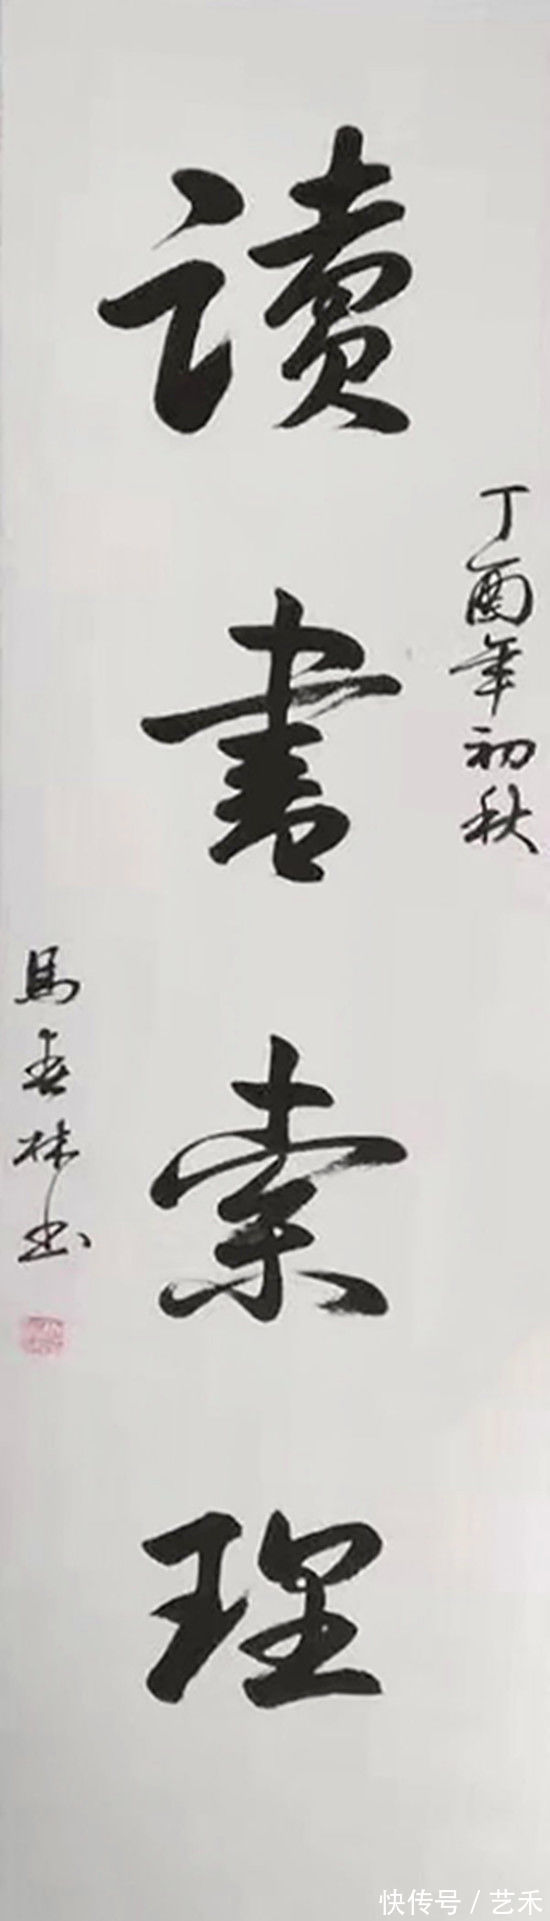 讀書索理
丁酉年初秋
馬春林书
快传号/艺禾